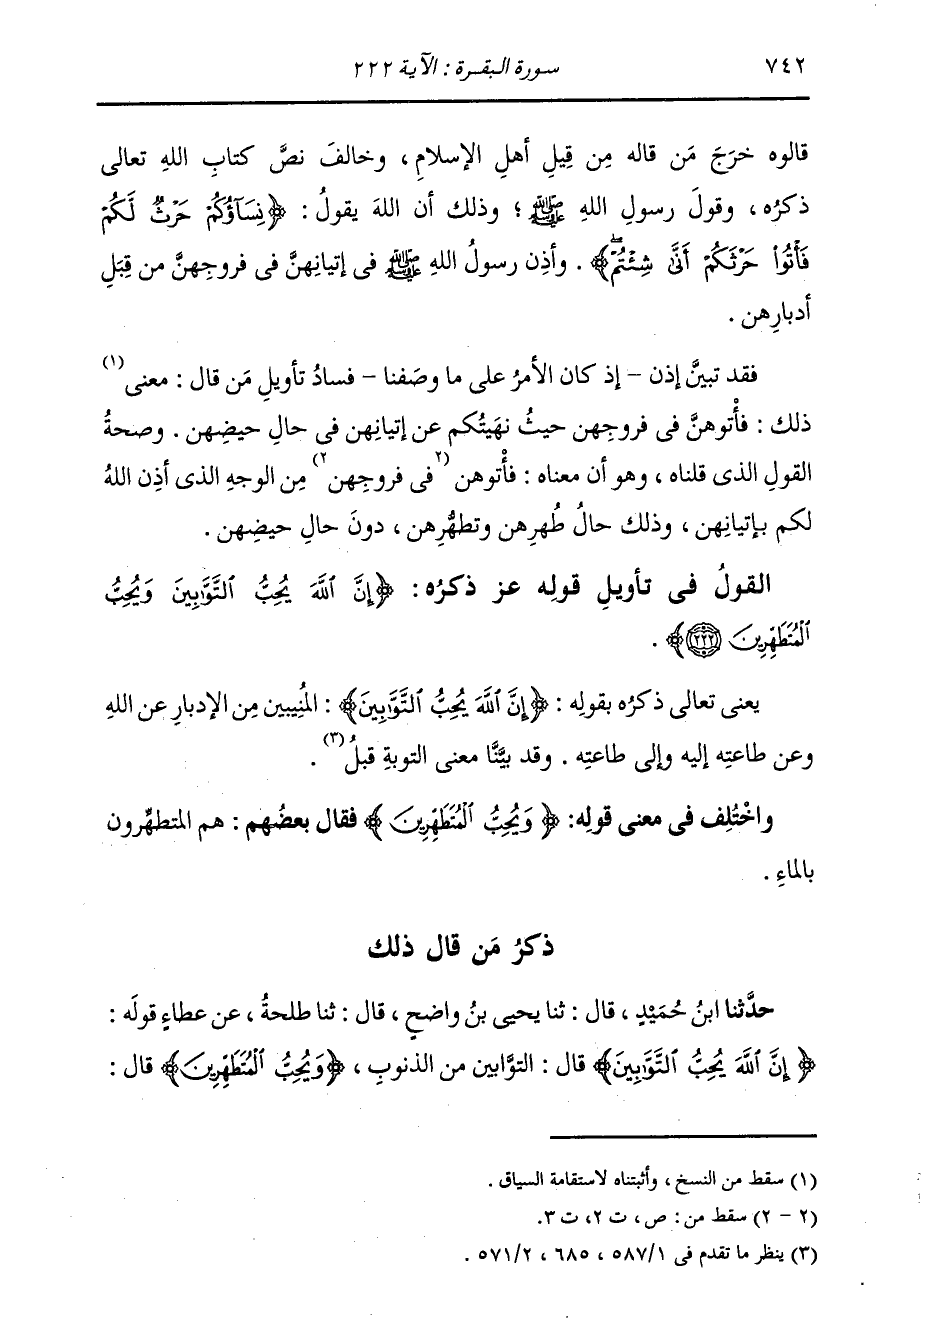 ٧٤٢ سورة البقرة : الآية ٢٢٢
قالوه خرَجَ مَن قاله مِن قِيلِ أهلِ الإسلامِ ، وخالفَ نصَّ كتابِ اللهِ تعالى
ذكرُه ، وقولَ رسولِ اللهِ ﷺ ؛ وذلك أن اللهَ يقولُ : ﴿نِسَآؤُكُمْ حَرْثٌ لَّكُمْ
فَأْتُوا۟ حَرْثَكُمْ أَنَّىٰ شِئْتُمْ ۖ﴾ . وأذِن رسولُ اللهِ ﷺ فى إتيانِهنَّ فى فروجِهنَّ من قِبَلِ
أدبارِهن .
فقد تبينَّ إذن – إذ كان الأمرُ على ما وصَفنا – فسادُ تأويلِ مَن قال : معنى(١)
ذلك : فأْتوهنَّ فى فروجِهن حيثُ نهَيتُكم عن إتيانِهن فى حالِ حيضِهن . وصحةُ
القولِ الذى قلناه ، وهو أن معناه : فأْتوهن (٢فى فروجِهن٢) مِن الوجهِ الذى أذِن اللهُ
لكم بإتيانِهن ، وذلك حالُ طُهرِهن وتطهُّرِهن ، دونَ حالِ حيضِهن .
القولُ فى تأويلِ قولِه عز ذكرُه : ﴿إِنَّ ٱللَّهَ يُحِبُّ ٱلتَّوَّٰبِينَ وَيُحِبُّ
ٱلْمُتَطَهِّرِينَ ﴿٢٢٢﴾﴾ .
يعنى تعالى ذكرُه بقولِه : ﴿إِنَّ ٱللَّهَ يُحِبُّ ٱلتَّوَّٰبِينَ﴾ : المُنِيبين مِن الإدبارِ عن اللهِ
وعن طاعتِه إليه وإلى طاعتِه . وقد بيَّنَّا معنى التوبةِ قبلُ(٣) .
واخْتُلِف فى معنى قولِه : ﴿ وَيُحِبُّ ٱلْمُتَطَهِّرِينَ ﴾ فقال بعضُهم : هم المتطهِّرون
بالماءِ .
ذكرُ مَن قال ذلك
حدَّثنا ابنُ حُمَيْدٍ ، قال : ثنا يحيى بنُ واضحٍ ، قال : ثنا طلحةُ ، عن عطاءٍ قولَه :
﴿ إِنَّ ٱللَّهَ يُحِبُّ ٱلتَّوَّٰبِينَ﴾ قال : التوَّابين من الذنوبِ ، ﴿وَيُحِبُّ ٱلْمُتَطَهِّرِينَ﴾ قال :
(١) سقط من النسخ ، وأثبتناه لاستقامة السياق .
(٢ – ٢) سقط من : ص ، ت ٢ ، ت ٣.
(٣) ينظر ما تقدم فى ٥٨٧/١ ، ٦٨٥ ، ٥٧١/٢ .